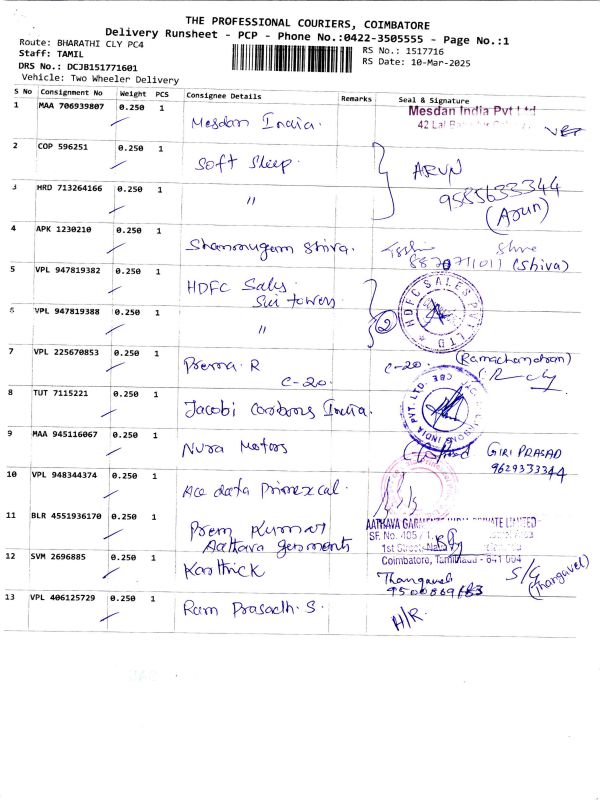 THE PROFESSIONAL COURIERS, COIMBATORE
Delivery Runsheet - PCP - Phone No.:0422-3505555 - Page No.:1
Route: BHARATHI CLY PC4
RS No.: 1517716
Staff: TAMIL
RS Date: 10-Mar-2025
DRS No.: DCJB151771601
Vehicle: Two Wheeler Delivery
S No Consignment No Weight PCS Consignee Details Remarks Seal & Signature
1 MAA 706939807 0.250 1 Mesdan India. Mesdan India Pvt Ltd
42 Lal
2 COP 596251 0.250 1 Soft Sleep. ARUN
9585633344
3 HRD 713264166 0.250 1 " (Arun)
4 APK 1230210 0.250 1 Shanmugam Shiva.
8870711011 (Shiva)
5 VPL 947819382 0.250 1 HDFC Sales HDFC SALES PVT LTD
Sri towers
6 VPL 947819388 0.250 1 " 2
7 VPL 225670853 0.250 1 Prema. R C-20. (Ramachandran)
C-20.
8 TUT 7115221 0.250 1 Jacobi Carbons India. INDIA PVT. LTD.
9 MAA 945116067 0.250 1 Nura Motors GIRI PRASAD
9629333344
10 VPL 948344374 0.250 1 Ace data Primexcal.
11 BLR 4551936170 0.250 1 Prem Kumar AATHAVA GARMENTS INDIA PRIVATE LIMITED
Aathava garments SF. No. 405 / 1,
1st Street,
12 SVM 2696885 0.250 1 Karthick Coimbatore, Tamilnadu - 641 004
Thangavel S/G (Thangavel)
13 VPL 406125729 0.250 1 Ram Prasadh. S. H/R.